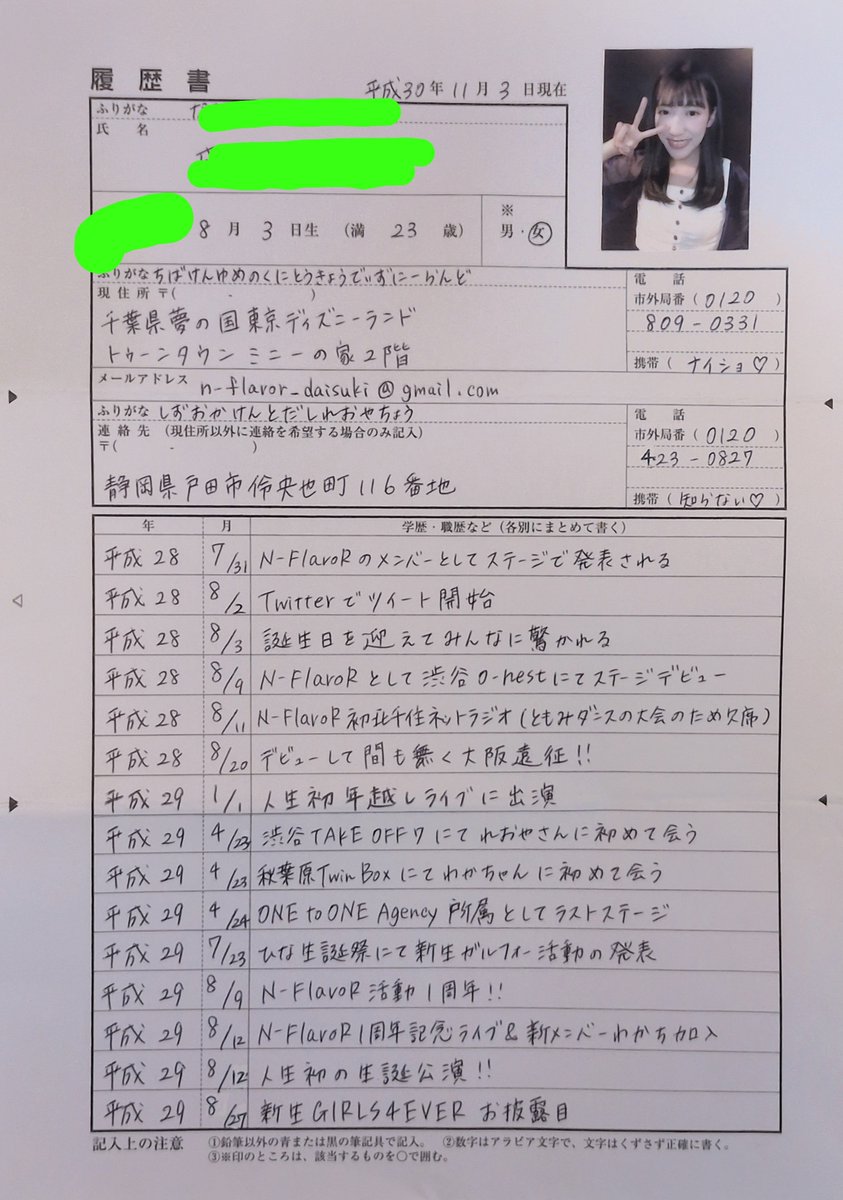 履歴書
平成30年 11月 3日現在
ふりがな
氏 名
8月 3日生 (満 23 歳)
※
男・女
ふりがな ちばけんゆめのくにとうきょうでぃずにーらんど
現住所 〒( - )
千葉県夢の国東京ディズニーランド
トゥーンタウン ミニーの家2階
電 話
市外局番 ( 0120 )
809-0331
携帯 ( ナイショ♡ )
メールアドレス n-flavor_daisuki@gmail.com
ふりがな しずおかけんとだしれおやちょう
連絡先 (現住所以外に連絡を希望する場合のみ記入)
〒( - )
静岡県戸田市伶央也町116番地
電 話
市外局番 ( 0120 )
423-0827
携帯 ( 知らない♡ )
年 月 学歴・職歴など (各別にまとめて書く)
平成 28 7/31 N-FlavoRのメンバーとしてステージで発表される
平成 28 8/2 Twitterでツイート開始
平成 28 8/3 誕生日を迎えてみんなに驚かれる
平成 28 8/9 N-FlavoRとして渋谷O-nestにてステージデビュー
平成 28 8/11 N-FlavoR初北千住ネットラジオ(ともみダンスの大会のため欠席)
平成 28 8/20 デビューして間も無く大阪遠征!!
平成 29 1/1 人生初年越しライブに出演
平成 29 4/23 渋谷TAKE OFF7にてれおやさんに初めて会う
平成 29 4/23 秋葉原Twin Boxにてわかちゃんに初めて会う
平成 29 4/24 ONE to ONE Agency所属としてラストステージ
平成 29 7/23 ひな生誕祭にて新生ガルフィー活動の発表
平成 29 8/9 N-FlavoR活動1周年!!
平成 29 8/12 N-FlavoR1周年記念ライブ&新メンバーわかち加入
平成 29 8/12 人生初の生誕公演!!
平成 29 8/27 新生GIRLS4EVERお披露目
記入上の注意 ①鉛筆以外の青または黒の筆記具で記入。 ②数字はアラビア文字で、文字はくずさず正確に書く。
③※印のところは、該当するものを○で囲む。